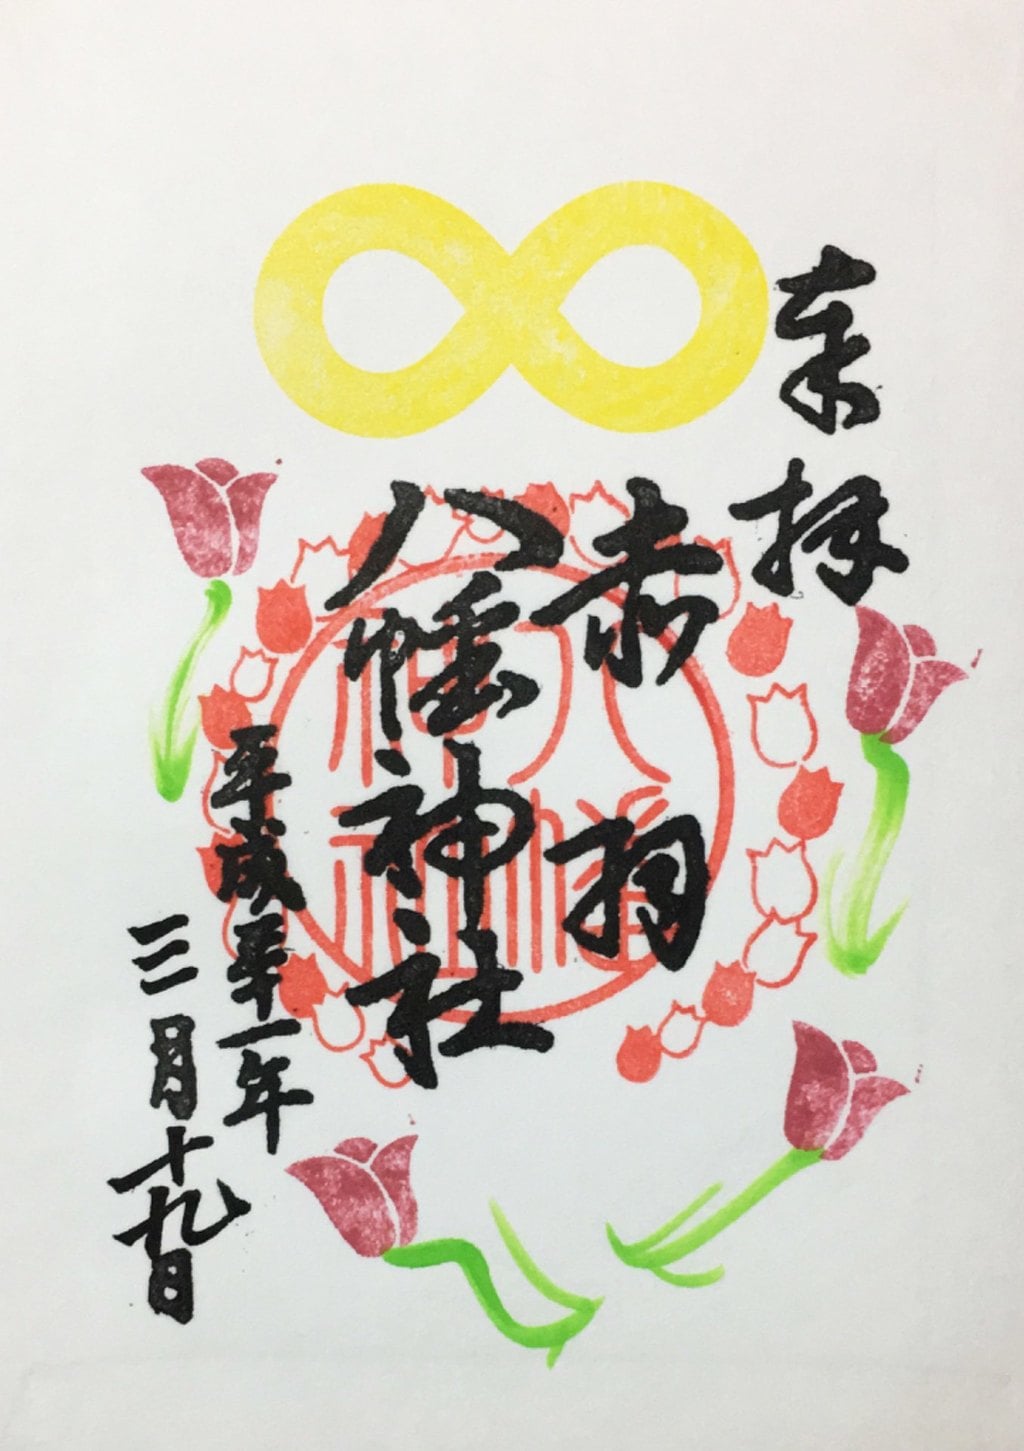 奉拝
赤羽
八幡神社
平成三十一年
三月十九日